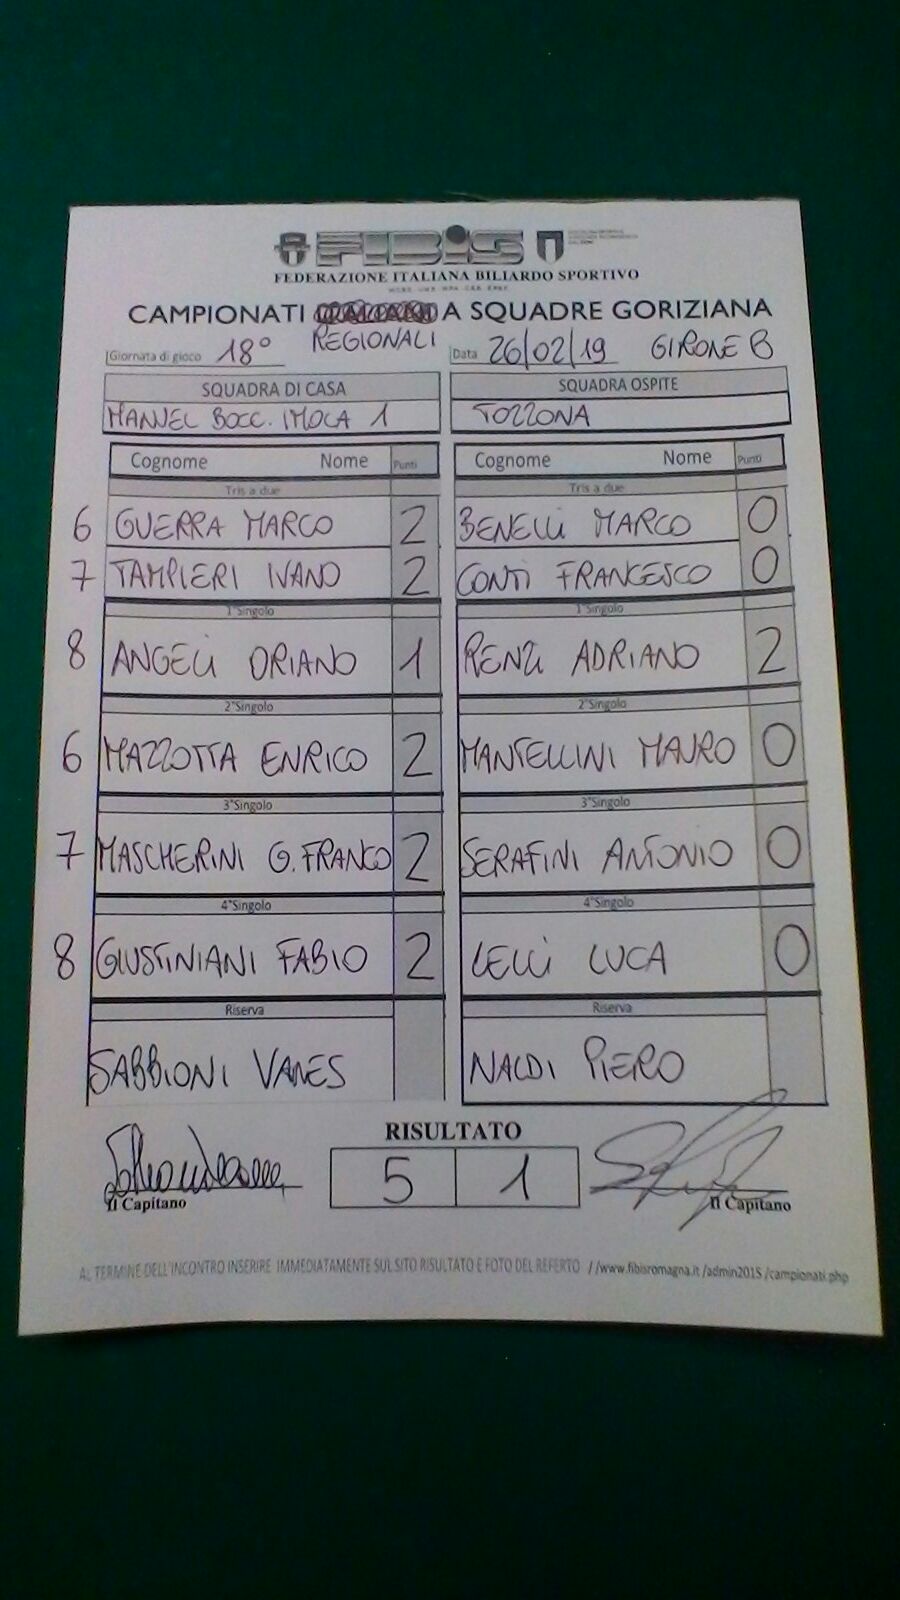 FIBIS
FEDERAZIONE ITALIANA BILIARDO SPORTIVO
CAMPIONATI A SQUADRE GORIZIANA
REGIONALI
Giornata di gioco 18° Data 26/02/19 GIRONE B
SQUADRA DI CASA SQUADRA OSPITE
MANUEL BOCC. IMOLA 1 TOZZONA
Cognome Nome Punti Cognome Nome Punti
Tris a due Tris a due
6 GUERRA MARCO 2 BENELLI MARCO 0
7 TAMPIERI IVANO 2 CONTI FRANCESCO 0
1°Singolo 1°Singolo
8 ANGELI ORIANO 1 RENZI ADRIANO 2
2°Singolo 2°Singolo
6 MAZZOTTA ENRICO 2 MANTELLINI MAURO 0
3°Singolo 3°Singolo
7 MASCHERINI G.FRANCO 2 SERAFINI ANTONIO 0
4°Singolo 4°Singolo
8 GIUSTINIANI FABIO 2 LELLI LUCA 0
Riserva Riserva
SABBIONI VANES NALDI PIERO
RISULTATO
5 1
Il Capitano Il Capitano
AL TERMINE DELL'INCONTRO INSERIRE IMMEDIATAMENTE SUL SITO RISULTATO E FOTO DEL REFERTO //www.fibisromagna.it /admin2015 /campionati.php